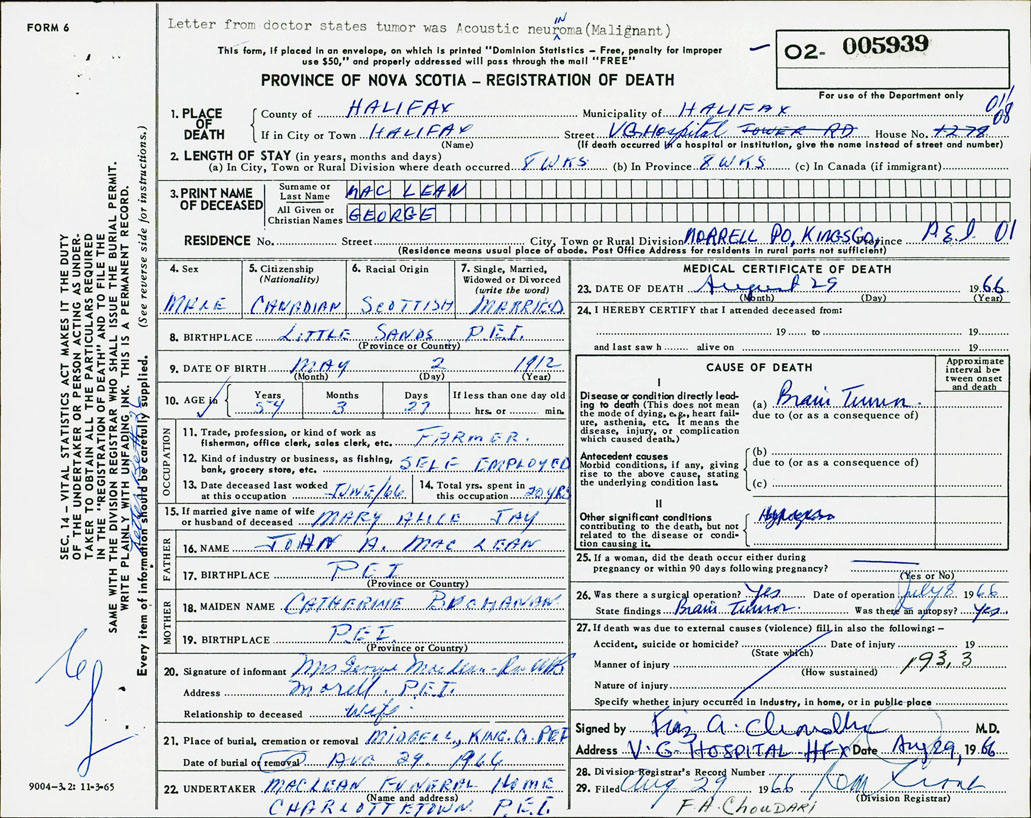 FORM 6
Letter from doctor states tumor was Acoustic neurinoma (Malignant)
This form, if placed in an envelope, on which is printed "Dominion Statistics – Free, penalty for improper
use $50," and properly addressed will pass through the mail "FREE"
02- 005939
For use of the Department only
PROVINCE OF NOVA SCOTIA – REGISTRATION OF DEATH
01/08
1. PLACE OF DEATH
County of HALIFAX Municipality of HALIFAX
If in City or Town HALIFAX (Name) Street VG Hospital TOWER RD House No. 1278
(If death occurred in a hospital or institution, give the name instead of street and number)
2. LENGTH OF STAY (in years, months and days)
(a) In City, Town or Rural Division where death occurred 8 WKS (b) In Province 8 WKS (c) In Canada (if immigrant)
3. PRINT NAME OF DECEASED
Surname or Last Name MAC LEAN
All Given or Christian Names GEORGE
RESIDENCE No. Street City, Town or Rural Division MORRELL PO, KINGS CO, Province P.E.I. 01
(Residence means usual place of abode. Post Office Address for residents in rural parts not sufficient)
4. Sex MALE
5. Citizenship (Nationality) CANADIAN
6. Racial Origin SCOTTISH
7. Single, Married, Widowed or Divorced (write the word) MARRIED
8. BIRTHPLACE LITTLE SANDS P.E.I.
(Province or Country)
9. DATE OF BIRTH MAY 2 1912
(Month) (Day) (Year)
10. AGE in Years 54 Months 3 Days 27 If less than one day old hrs. or min.
OCCUPATION
11. Trade, profession, or kind of work as fisherman, office clerk, sales clerk, etc. FARMER.
12. Kind of industry or business, as fishing, bank, grocery store, etc. SELF EMPLOYED
13. Date deceased last worked at this occupation JUNE/66
14. Total yrs. spent in this occupation 20 YRS
15. If married give name of wife or husband of deceased MARY ALICE JAY
FATHER
16. NAME JOHN A. MAC LEAN
17. BIRTHPLACE P.E.I
(Province or Country)
MOTHER
18. MAIDEN NAME CATHERINE BUCHANAN
19. BIRTHPLACE P.E.I.
(Province or Country)
20. Signature of informant Mrs George MacLean
Address Morell, P.E.I.
Relationship to deceased Wife
21. Place of burial, cremation or removal MIDGELL, KING. Co. PEI
Date of burial or removal AUG 29. 1966
22. UNDERTAKER MACLEAN FUNERAL HOME
(Name and address)
CHARLOTTETOWN P.E.I.
MEDICAL CERTIFICATE OF DEATH
23. DATE OF DEATH August 29 1966
(Month) (Day) (Year)
24. I HEREBY CERTIFY that I attended deceased from:
19 to 19
and last saw h alive on 19
CAUSE OF DEATH
Approximate interval between onset and death
I
Disease or condition directly leading to death (This does not mean the mode of dying, e.g., heart failure, asthenia, etc. It means the disease, injury, or complication which caused death.)
(a) Brain Tumor.
due to (or as a consequence of)
Antecedent causes
Morbid conditions, if any, giving rise to the above cause, stating the underlying condition last.
(b)
due to (or as a consequence of)
(c)
II
Other significant conditions contributing to the death, but not related to the disease or condition causing it.
25. If a woman, did the death occur either during pregnancy or within 90 days following pregnancy?
(Yes or No)
26. Was there a surgical operation? Yes Date of operation July 8 1966
State findings Brain Tumor. Was there an autopsy? Yes.
27. If death was due to external causes (violence) fill in also the following: –
Accident, suicide or homicide? Date of injury 19
(State which)
Manner of injury 193,3
(How sustained)
Nature of injury
Specify whether injury occurred in industry, in home, or in public place
Signed by M.D.
Address V.G. HOSPITAL HFX Date Aug 29, 1966
28. Division Registrar's Record Number
29. Filed Aug 29 1966
(Division Registrar)
F.A. CHOUDARI
SEC. 14 – VITAL STATISTICS ACT MAKES IT THE DUTY
OF THE UNDERTAKER OR PERSON ACTING AS UNDER-
TAKER TO OBTAIN ALL THE PARTICULARS REQUIRED
IN THE "REGISTRATION OF DEATH" AND TO FILE THE
SAME WITH THE DIVISION REGISTRAR WHO SHALL ISSUE THE BURIAL PERMIT.
WRITE PLAINLY WITH UNFADING INK. THIS IS A PERMANENT RECORD.
Every item of information should be carefully supplied. (See reverse side for instructions.)
9004-3.2: 11-3-65